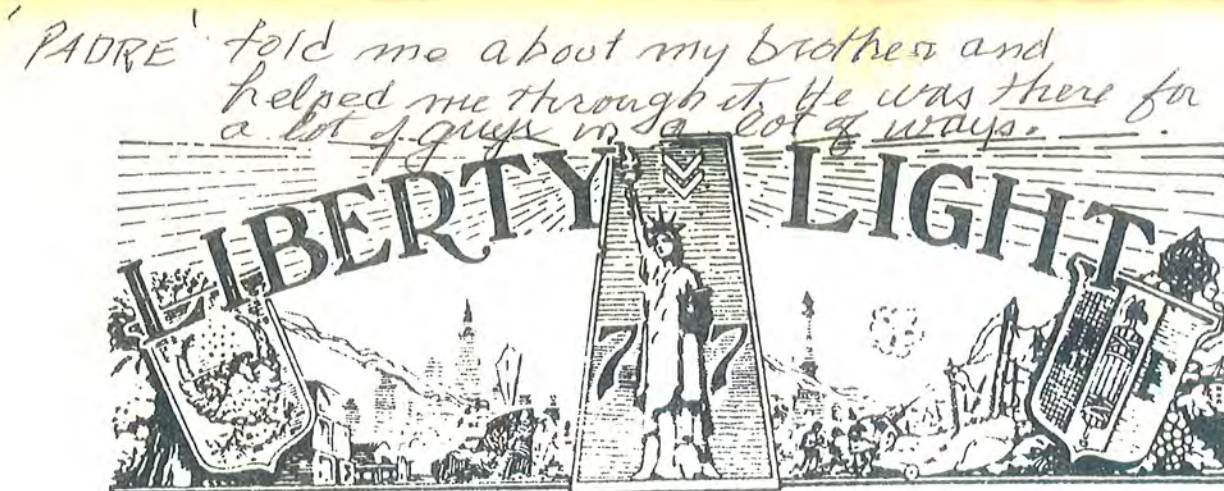 'PADRE' told me about my brother and
helped me through it. He was there for
a lot of guys in a lot of ways.
LIBERTY LIGHT
77